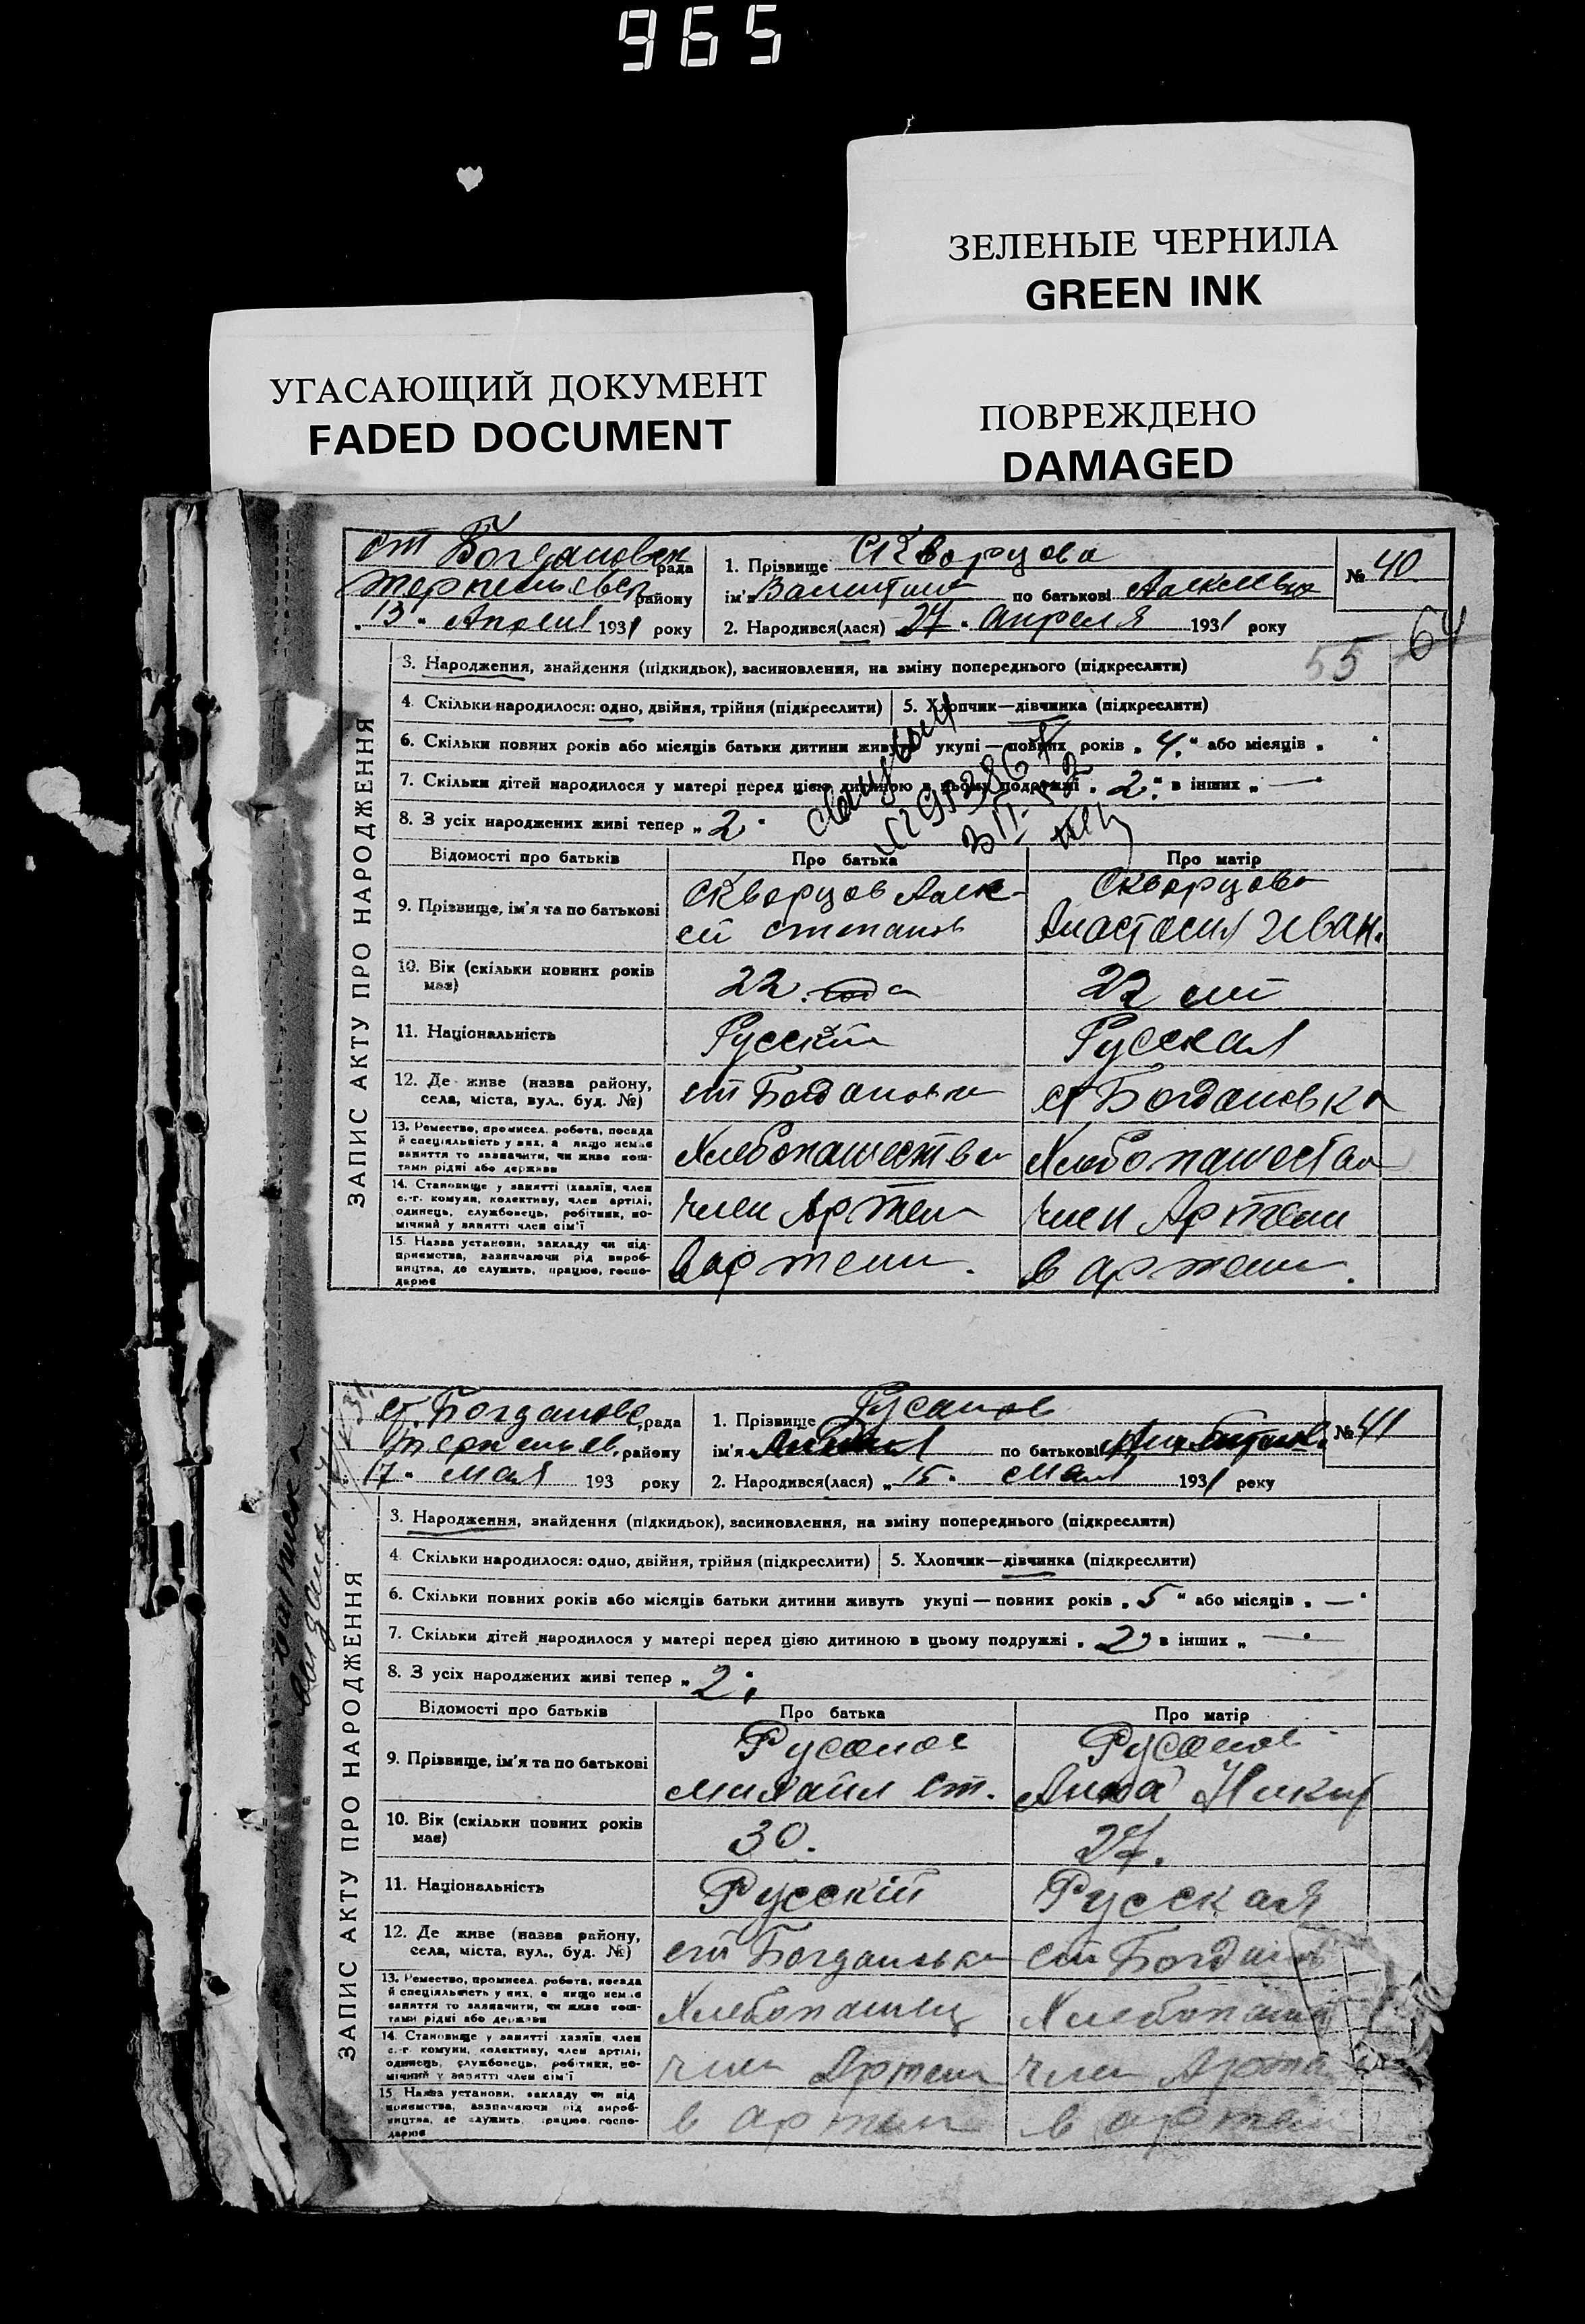 965
ЗЕЛЕНЫЕ ЧЕРНИЛА
GREEN INK
УГАСАЮЩИЙ ДОКУМЕНТ
FADED DOCUMENT
ПОВРЕЖДЕНО
DAMAGED
ст Богдановск рада
району
"13" 1931 року
1. Прізвище Скворцова
ім'я Валентина по батькові Алексеевна
2. Народився(лася) "27" Апреля 1931 року
№ 40
64
55
ЗАПИС АКТУ ПРО НАРОДЖЕННЯ
3. Народження, знайдення (підкидьок), засиновлення, на зміну попереднього (підкреслити)
4. Скільки народилося: одно, двійня, трійня (підкреслити) 5. Хлопчик—дівчинка (підкреслити)
6. Скільки повних років або місяців батьки дитини живуть укупі — повних років "4" або місяців "
7. Скільки дітей народилося у матері перед цією дитиною в цьому подружжі "2" в інших " —
8. З усіх народжених живі тепер "2"
Відомості про батьків Про батька Про матір
9. Прізвище, ім'я та по батькові
Скворцов Алек-
ей степанов
Скворцова
Анастасия Иван.
10. Вік (скільки повних років має) 22 года 22 лет
11. Національність Русский Русская
12. Де живе (назва району,
села, міста, вул., буд. №) ст Богдановка ст Богдановка
13. Ремество, промисел, робота, посада
й спеціяльність у них, а якщо немає
заняття то зазначити, чи живе кош-
тами рідні або держави
14. Становище у занятті (хазяїн, член
с.-г. комуни, колективу, член артілі,
одинець, службовець, робітник, по-
мічний у занятті член сім'ї
член Артели член Артели
15. Назва установи, закладу чи під-
приємства, зазначаючи рід вироб-
ництва, де служить, працює, госпо-
дарює
в артели. в артели.
ст. Богдановс, рада
району
"17" Мая 193 року
1. Прізвище Русанов
ім'я по батькові
2. Народився(лася) "15" Мая 1931 року
№ 41
ЗАПИС АКТУ ПРО НАРОДЖЕННЯ
3. Народження, знайдення (підкидьок), засиновлення, на зміну попереднього (підкреслити)
4. Скільки народилося: одно, двійня, трійня (підкреслити) 5. Хлопчик—дівчинка (підкреслити)
6. Скільки повних років або місяців батьки дитини живуть укупі — повних років "5" або місяців " —"
7. Скільки дітей народилося у матері перед цією дитиною в цьому подружжі "2" в інших " —
8. З усіх народжених живі тепер "2"
Відомості про батьків Про батька Про матір
9. Прізвище, ім'я та по батькові
Русанов
Михаил Ст.
Русанов
Анна Никит
10. Вік (скільки повних років має) 30. 27.
11. Національність Русскій Русская
12. Де живе (назва району,
села, міста, вул., буд. №) ст Богдановка ст Богданов
13. Ремество, промисел, робота, посада
й спеціяльність у них, а якщо немає
заняття то зазначити, чи живе кош-
тами рідні або держави
Хлебопашец
14. Становище у занятті хазяїн, член
с.-г. комуни, колективу, член артілі,
одинець, службовець, робітник, по-
мічний у занятті член сім'ї
член Артели член
15. Назва установи, закладу чи під
приємства, зазначаючи рід вироб-
ництва, де служить, працює, госпо-
дарює
в артели в артели